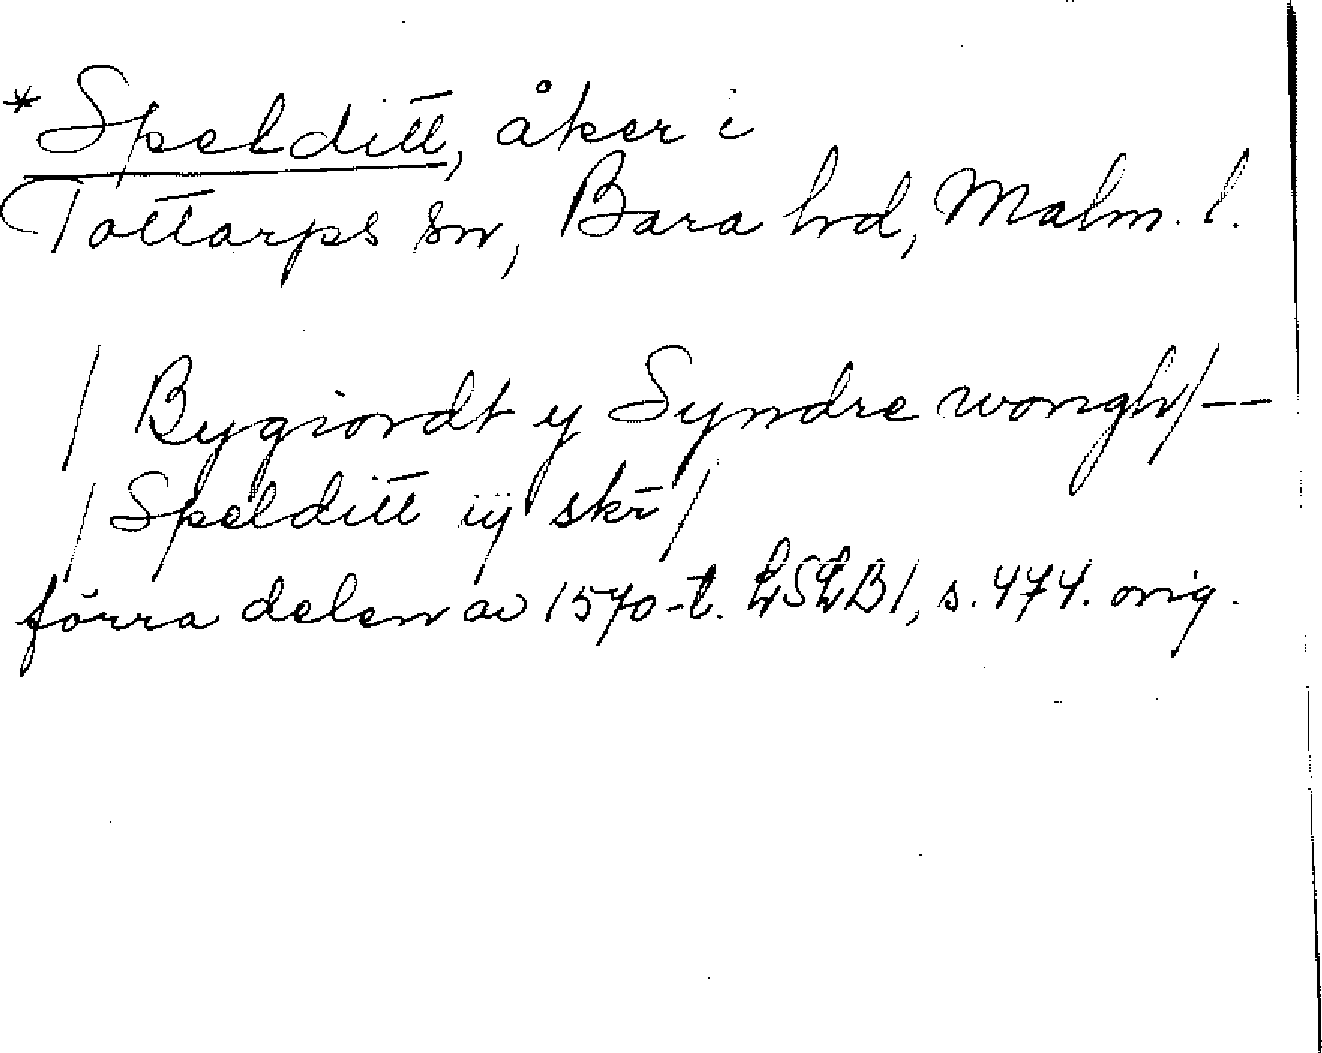 *Spelditt, åker i
Tottarps sn, Bara hd, Malm. l.
/ Bygiordt y Syndre wongh/--
/ Spelditt iij skr /
förra delen av 1570-t. LSLB1, s. 474. orig.